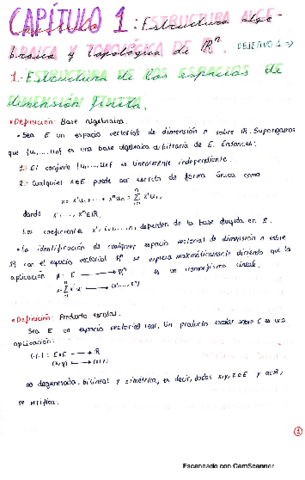 CAPÍTULO 1: ESTRUCTURA ALGE-
BRAICA Y TOPOLÓGICA DE ℝⁿ. OBJETIVO 1 →
1. ESTRUCTURA DE LOS ESPACIOS DE
DIMENSIÓN FINITA.
• Definición: Base algebraica.
• Sea E un espacio vectorial de dimensión n sobre ℝ. Supongamos
que {u₁,...,uₙ} es una base algebraica arbitraria de E. Entonces:
1. El conjunto {u₁,...,uₙ} es linealmente independiente.
2. Cualquier x∈E puede ser escrito de forma única como
x = x¹u₁ + ... + xⁿuₙ = Σ xⁱuᵢ,
donde x¹, ..., xⁿ∈ℝ.
Los coeficientes x¹, ..., xⁿ dependen de la base elegida en E.
• La identificación de cualquier espacio vectorial de dimensión n sobre
ℝ con el espacio vectorial ℝⁿ se expresa matemáticamente diciendo que la
aplicación φ: E → ℝⁿ es un isomorfismo lineal.
x = Σ xⁱuᵢ → (x¹,...,xⁿ)
• Definición: Producto escalar.
Sea E un espacio vectorial real. Un producto escalar sobre E es una
aplicación:
⟨·,·⟩: E×E → ℝ
(x,y) → ⟨x,y⟩
no degenerada, bilineal y simétrica, es decir, dados x,y,z∈E y α∈ℝ,
se verifica:
1
Escaneado con CamScanner